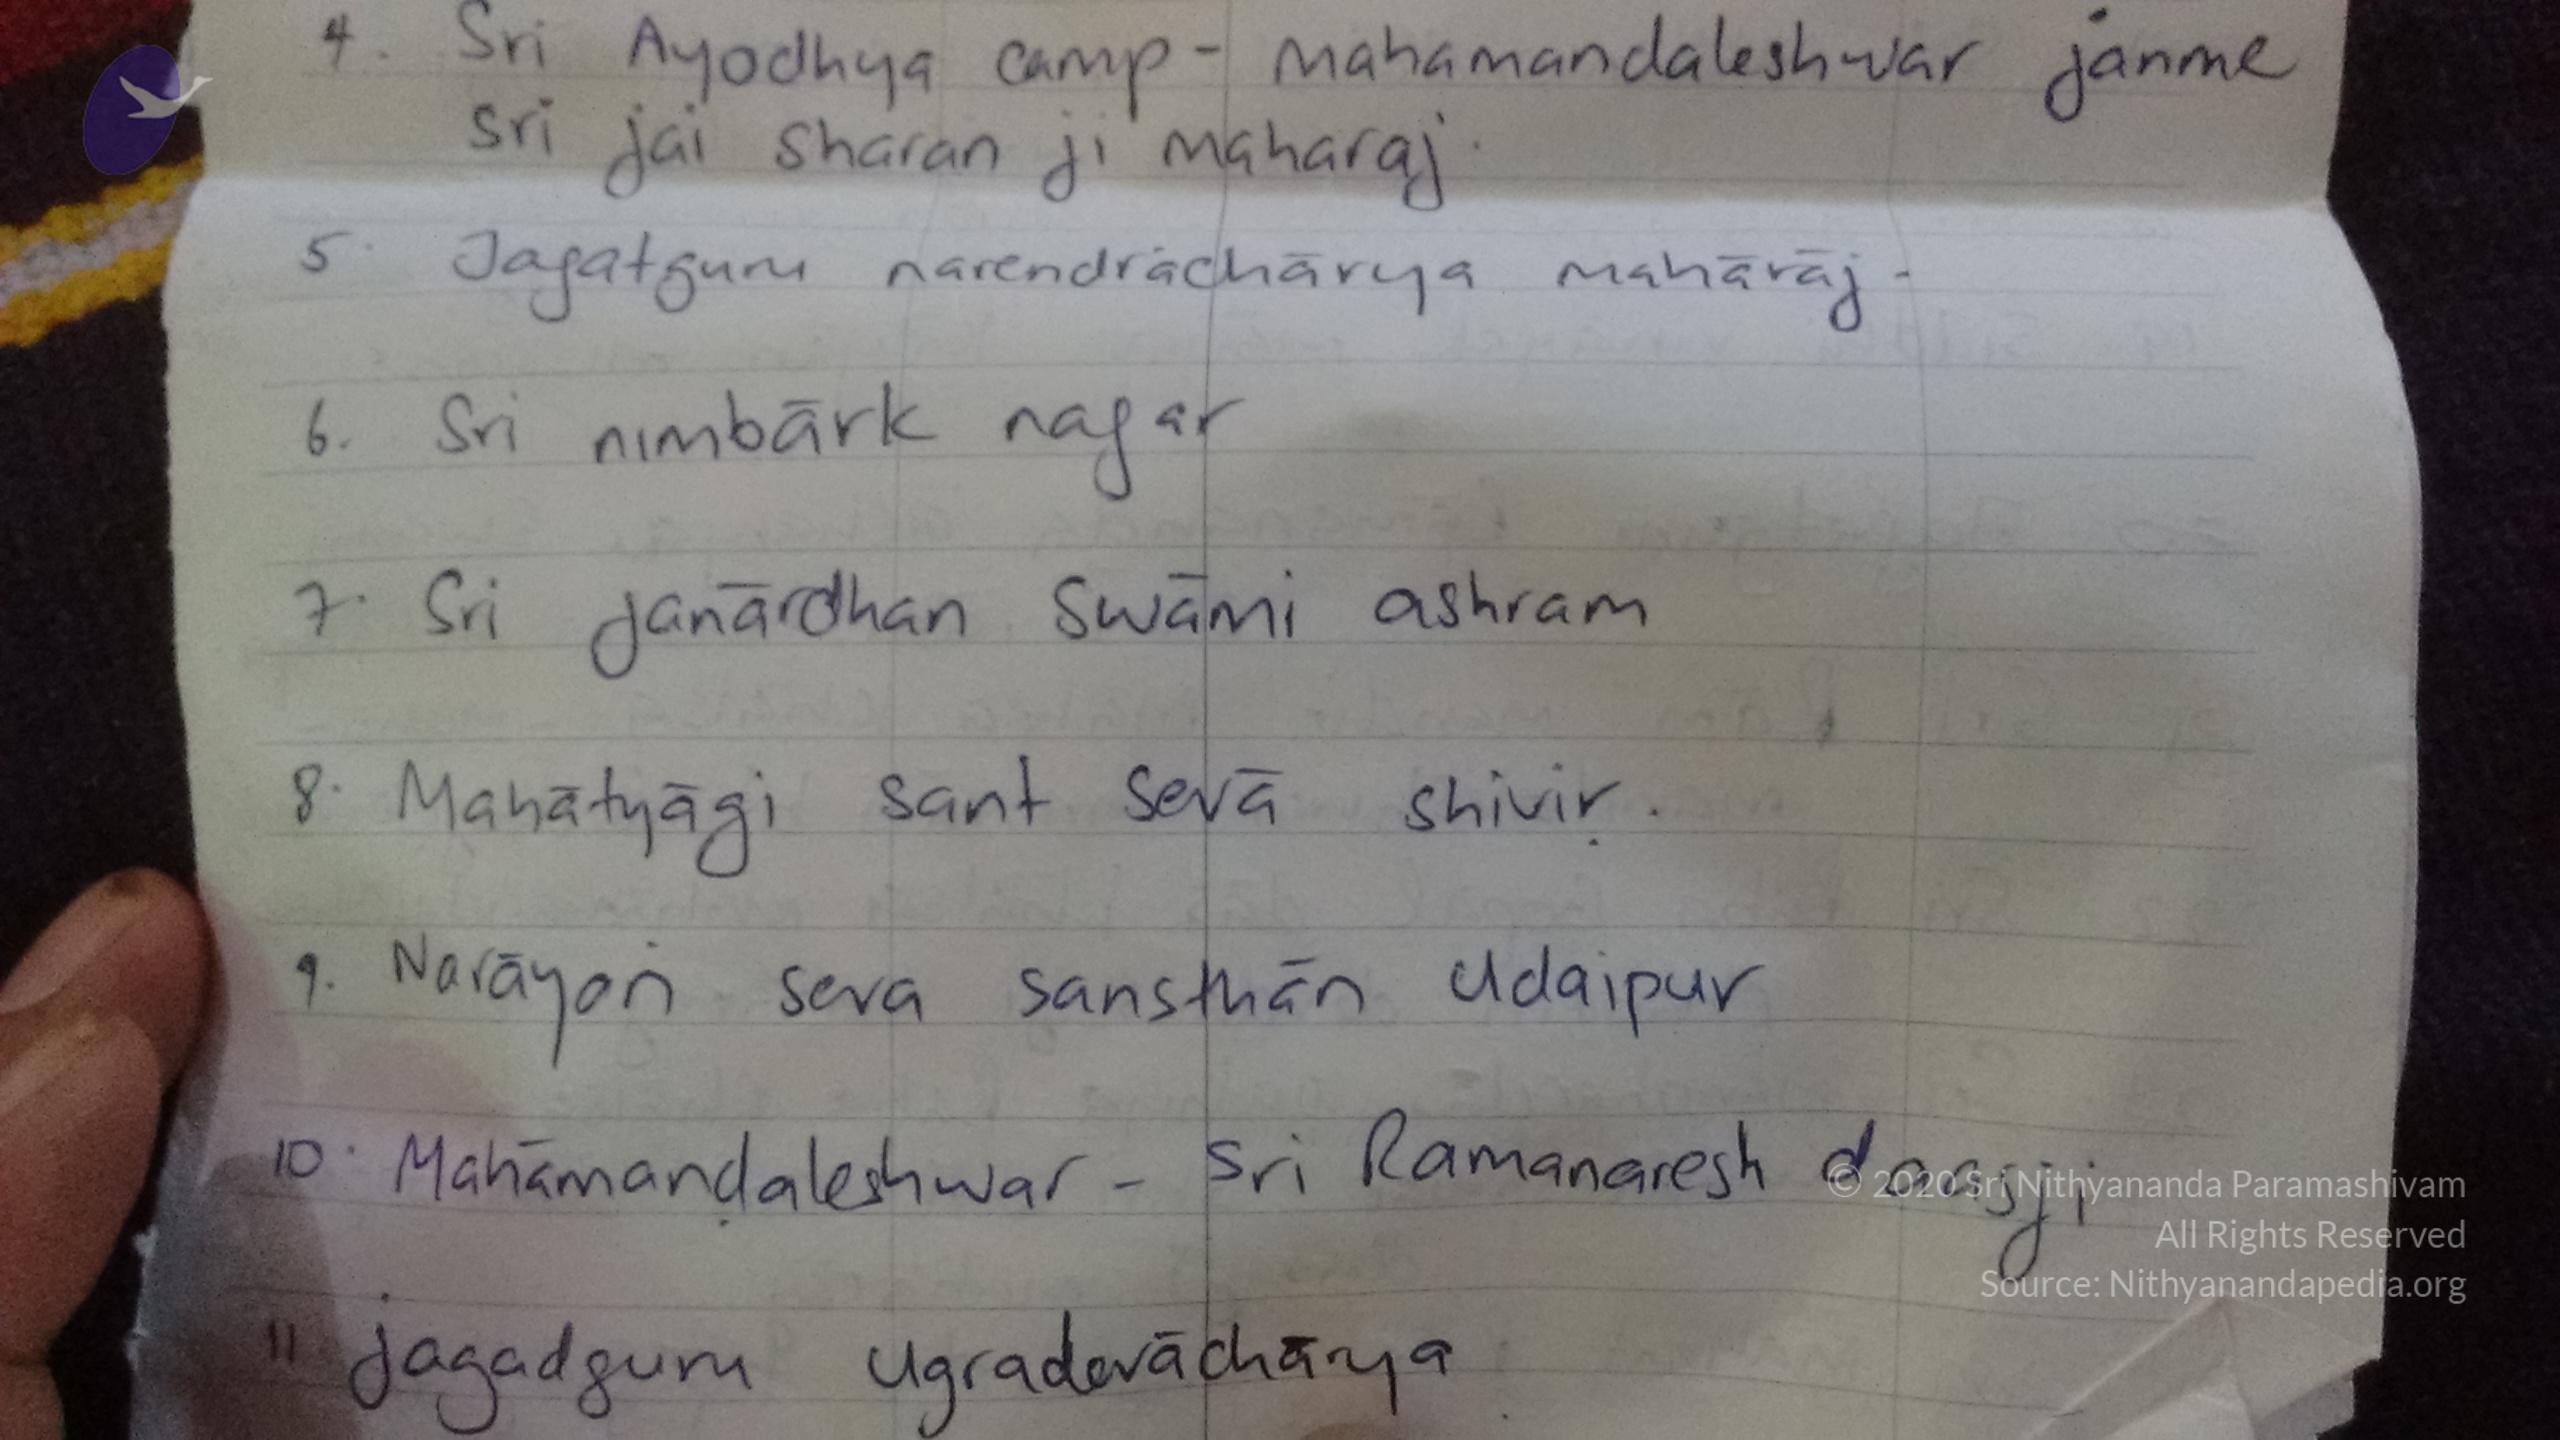 4. Sri Ayodhya camp - mahamandaleshwar janme
sri jai sharan ji maharaj.
5. Jagatguru narendrāchārya mahārāj -
6. Sri nimbārk nagar
7. Sri janārdhan swāmi ashram
8. Mahātyāgi sant sevā shivir.
9. Narāyaṅ seva sansthān udaipur
10. Mahāmanḍaleshwar - Sri Ramanaresh daasji
11 jagadguru ugradevāchārya
© 2020 Sri Nithyananda Paramashivam
All Rights Reserved
Source: Nithyanandapedia.org